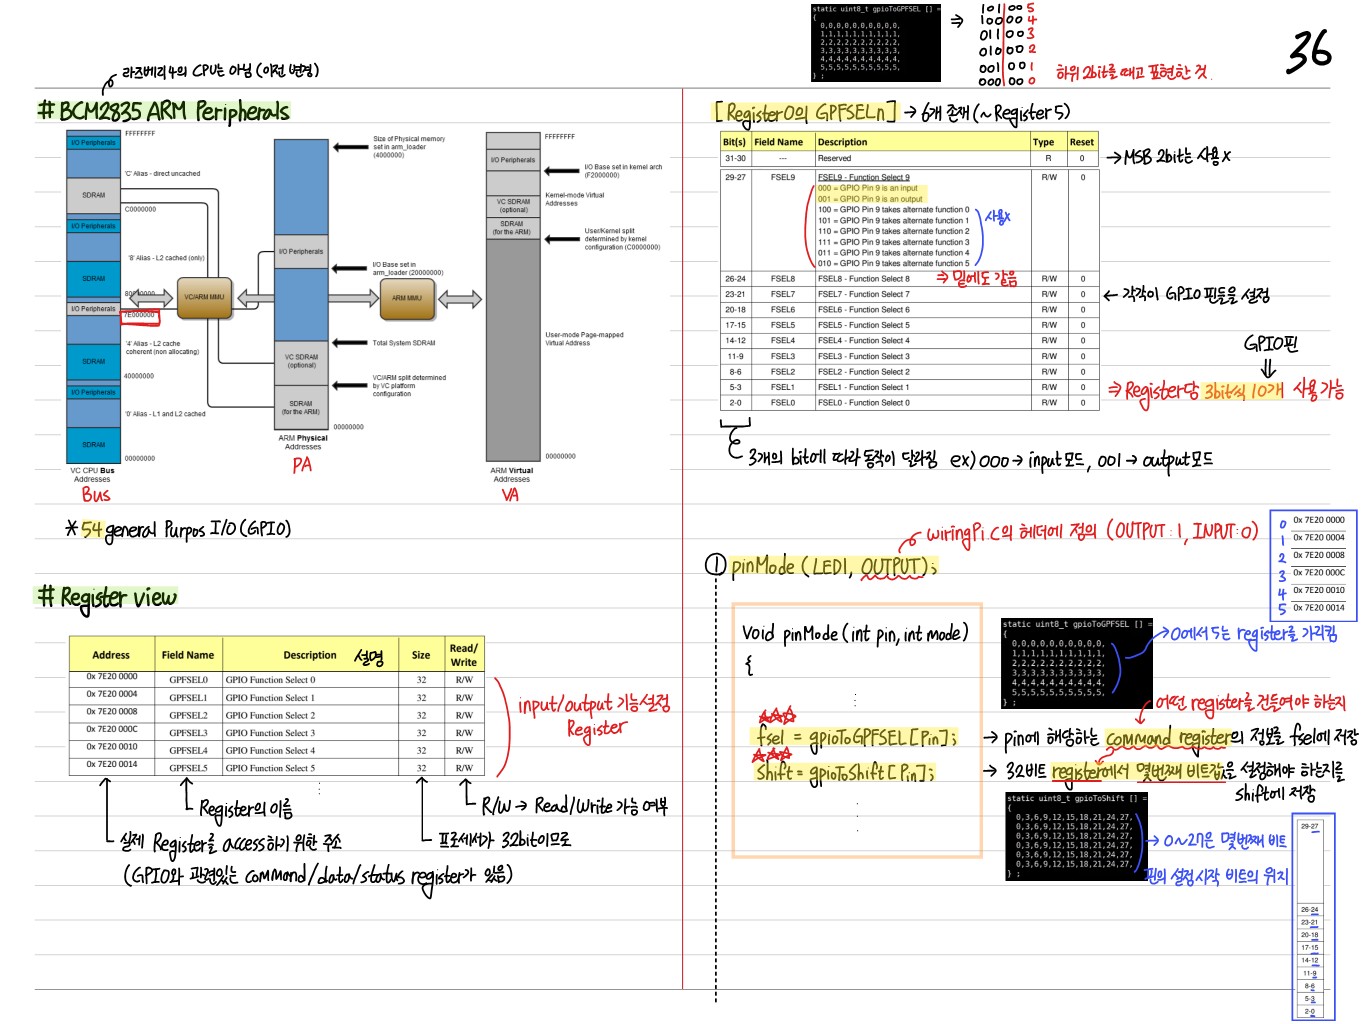 36
라즈베리 4의 CPU는 아님 (이전 변경)
# BCM2835 ARM Peripherals
FFFFFFFF
I/O Peripherals
'C' Alias - direct uncached
SDRAM
C0000000
I/O Peripherals
'8' Alias - L2 cached (only)
SDRAM
I/O Peripherals
7E000000
'4' Alias - L2 cache
coherent (non allocating)
SDRAM
40000000
I/O Peripherals
'0' Alias - L1 and L2 cached
SDRAM
00000000
VC CPU Bus
Addresses
Bus
VC/ARM MMU
Size of Physical memory
set in arm_loader
(4000000)
I/O Peripherals
I/O Base set in
arm_loader (20000000)
Total System SDRAM
VC SDRAM
(optional)
VC/ARM split determined
by VC platform
configuration
SDRAM
(for the ARM)
00000000
ARM Physical
Addresses
PA
ARM MMU
FFFFFFFF
I/O Peripherals
I/O Base set in kernel arch
(F2000000)
Kernel-mode Virtual
Addresses
VC SDRAM
(optional)
SDRAM
(for the ARM)
User/Kernel split
determined by kernel
configuration (C0000000)
User-mode Page-mapped
Virtual Address
00000000
ARM Virtual
Addresses
VA
* 54 general Purpos I/O (GPIO)
# Register view
Address Field Name Description 설명 Size Read/Write
0x 7E20 0000 GPFSEL0 GPIO Function Select 0 32 R/W
0x 7E20 0004 GPFSEL1 GPIO Function Select 1 32 R/W
0x 7E20 0008 GPFSEL2 GPIO Function Select 2 32 R/W
0x 7E20 000C GPFSEL3 GPIO Function Select 3 32 R/W
0x 7E20 0010 GPFSEL4 GPIO Function Select 4 32 R/W
0x 7E20 0014 GPFSEL5 GPIO Function Select 5 32 R/W
input/output 기능설정
Register
Register의 이름
R/W → Read/Write 가능 여부
실제 Register를 access하기 위한 주소
프로세서가 32bit이므로
(GPIO와 관련있는 command/data/status register가 있음)
static uint8_t gpioToGPFSEL [] =
{
0,0,0,0,0,0,0,0,0,0,
1,1,1,1,1,1,1,1,1,1,
2,2,2,2,2,2,2,2,2,2,
3,3,3,3,3,3,3,3,3,3,
4,4,4,4,4,4,4,4,4,4,
5,5,5,5,5,5,5,5,5,5,
} ;
⇒
101 00 5
100 00 4
011 00 3
010 00 2
001 00 1
000 00 0
하위 2bit를 떼고 표현한 것.
[Register 0의 GPFSELn] → 6개 존재 (~Register 5)
Bit(s) Field Name Description Type Reset
31-30 --- Reserved R 0
→ MSB 2bit는 사용 X
29-27 FSEL9 FSEL9 - Function Select 9 R/W 0
000 = GPIO Pin 9 is an input
001 = GPIO Pin 9 is an output
100 = GPIO Pin 9 takes alternate function 0
101 = GPIO Pin 9 takes alternate function 1
110 = GPIO Pin 9 takes alternate function 2
111 = GPIO Pin 9 takes alternate function 3
011 = GPIO Pin 9 takes alternate function 4
010 = GPIO Pin 9 takes alternate function 5
사용X
26-24 FSEL8 FSEL8 - Function Select 8 R/W 0
⇒ 밑에도 같음
23-21 FSEL7 FSEL7 - Function Select 7 R/W 0
← 각각이 GPIO 핀들을 설정
20-18 FSEL6 FSEL6 - Function Select 6 R/W 0
17-15 FSEL5 FSEL5 - Function Select 5 R/W 0
14-12 FSEL4 FSEL4 - Function Select 4 R/W 0
11-9 FSEL3 FSEL3 - Function Select 3 R/W 0
8-6 FSEL2 FSEL2 - Function Select 2 R/W 0
5-3 FSEL1 FSEL1 - Function Select 1 R/W 0
2-0 FSEL0 FSEL0 - Function Select 0 R/W 0
GPIO핀
⇒ Register당 3bit씩 10개 사용 가능
3개의 bit에 따라 동작이 달라짐 ex) 000 → input 모드, 001 → output 모드
wiringPi.C의 헤더에 정의 (OUTPUT : 1, INPUT : 0)
① pinMode (LED1, OUTPUT);
0 0x 7E20 0000
1 0x 7E20 0004
2 0x 7E20 0008
3 0x 7E20 000C
4 0x 7E20 0010
5 0x 7E20 0014
Void pinMode (int pin, int mode)
{
fsel = gpioToGPFSEL [Pin];
Shift = gpioToShift [Pin];
static uint8_t gpioToGPFSEL [] =
{
0,0,0,0,0,0,0,0,0,0,
1,1,1,1,1,1,1,1,1,1,
2,2,2,2,2,2,2,2,2,2,
3,3,3,3,3,3,3,3,3,3,
4,4,4,4,4,4,4,4,4,4,
5,5,5,5,5,5,5,5,5,5,
} ;
→ 0에서 5는 register를 가리킴
어떤 register를 건들여야 하는지
→ pin에 해당하는 command register의 정보를 fsel에 저장
→ 32비트 register에서 몇번째 비트값을 설정해야 하는지를
Shift에 저장
static uint8_t gpioToShift [] =
{
0,3,6,9,12,15,18,21,24,27,
0,3,6,9,12,15,18,21,24,27,
0,3,6,9,12,15,18,21,24,27,
0,3,6,9,12,15,18,21,24,27,
0,3,6,9,12,15,18,21,24,27,
0,3,6,9,12,15,18,21,24,27,
} ;
→ 0~27은 몇번째 비트
핀의 설정 시작 비트의 위치
29-27
26-24
23-21
20-18
17-15
14-12
11-9
8-6
5-3
2-0